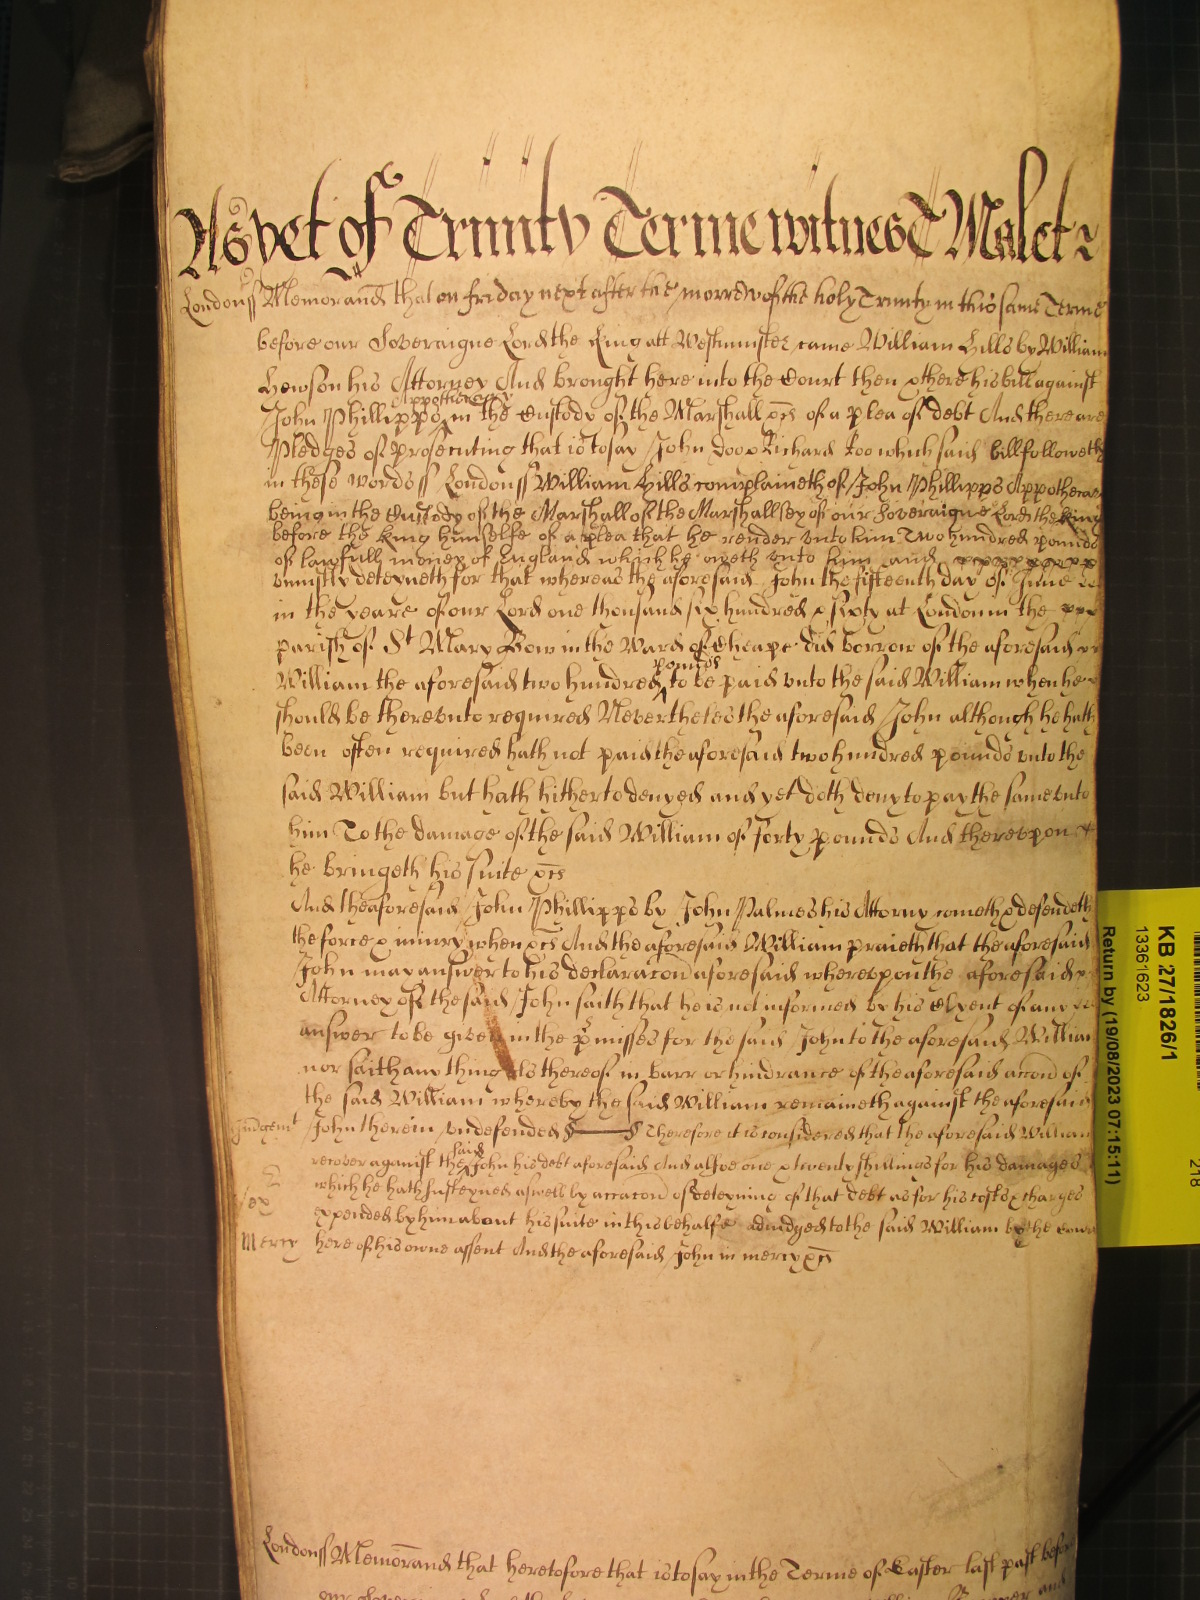 As yet of Trinity Terme witnes T Malet
Londonss Memorand that on friday next after the morrow of the holy Trinity in this same Terme
before our Soveraigne Lord the King att Westminster came William Hills by William
Hewson his Attorney And brought here into the Court then & there his bill against
Appothecary
John Phillipps in the Custody of the Marshall &c of a plea of debt And there are
Pledges of prosecuting that is to say John Doo & Richard Roo which said bill followeth
in these words ss Londonss William Hills complaineth of John Phillipps Appothecary
being in the Custody of the Marshall of the Marshallsey of our Soveraigne Lord the King
before the King himselfe of a plea that he render unto him Two hundred pounds
of lawfull money of England which he oweth unto him and
uniustly deteyneth for that whereas the aforesaid John the fifteenth day of June
in the yeare of our Lord one thousand six hundred & sixty at London in the
parish of St Mary Bow in the Ward of Cheape did borrow of the aforesaid
pounds
William the aforesaid two hundred to be paid unto the said William when he
should be thereunto required Neverthelesse the aforesaid John although he hath
been often required hath not paid the aforesaid two hundred pounds unto the
said William but hath hitherto denyed and yet doth deny to pay the same unto
him To the damage of the said William of forty pounds And thereupon
he bringeth his suite &c
And the aforesaid John Phillipps by John Palmes his Attorny cometh & defendeth
the force & iniury when &c And the aforesaid William praieth that the aforesaid
John may answer to his declaracon aforesaid whereupon the aforesaid
Attorney of the said John saith that he is not informed by his Clyent of any
answer to be given in the pmisses for the said John to the aforesaid William
nor saith any thing els thereof in barr or hindrance of the aforesaid accon of
the said William whereby the said William remaineth against the aforesaid
Judgemt John therein undefended Therefore it is considered that the aforesaid William
said
recover against the John his debt aforesaid And alsoe one & twenty shillings for his damages
which he hath susteyned aswell by occacon of deteyning of that debt as for his costs & charges
expended by him about his suite in this behalfe adiudged to the said William by the Court
Mercy here of his owne assent And the aforesaid John in mercy &c
Londonss Memorand that heretofore that is to say in the Terme of Easter last past before
KB 27/1826/1
13361623
Return by (19/08/2023 07:15:11)
218